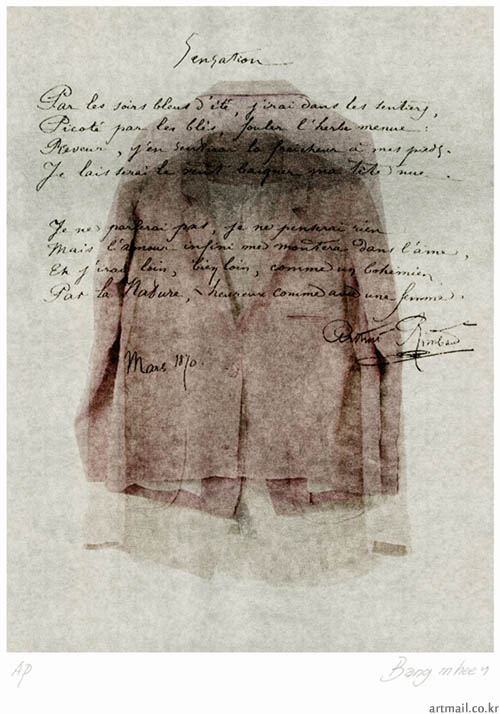 Sensation
Par les soirs bleus d'été, j'irai dans les sentiers,
Picoté par les blés, fouler l'herbe menue :
Rêveur, j'en sentirai la fraîcheur à mes pieds.
Je laisserai le vent baigner ma tête nue.
Je ne parlerai pas, je ne penserai rien
Mais l'amour infini me montera dans l'âme,
Et j'irai loin, bien loin, comme un bohémien
Par la Nature, heureux comme avec une femme.
Arthur Rimbaud
Mars 1870.
AP
Bang
artmail.co.kr